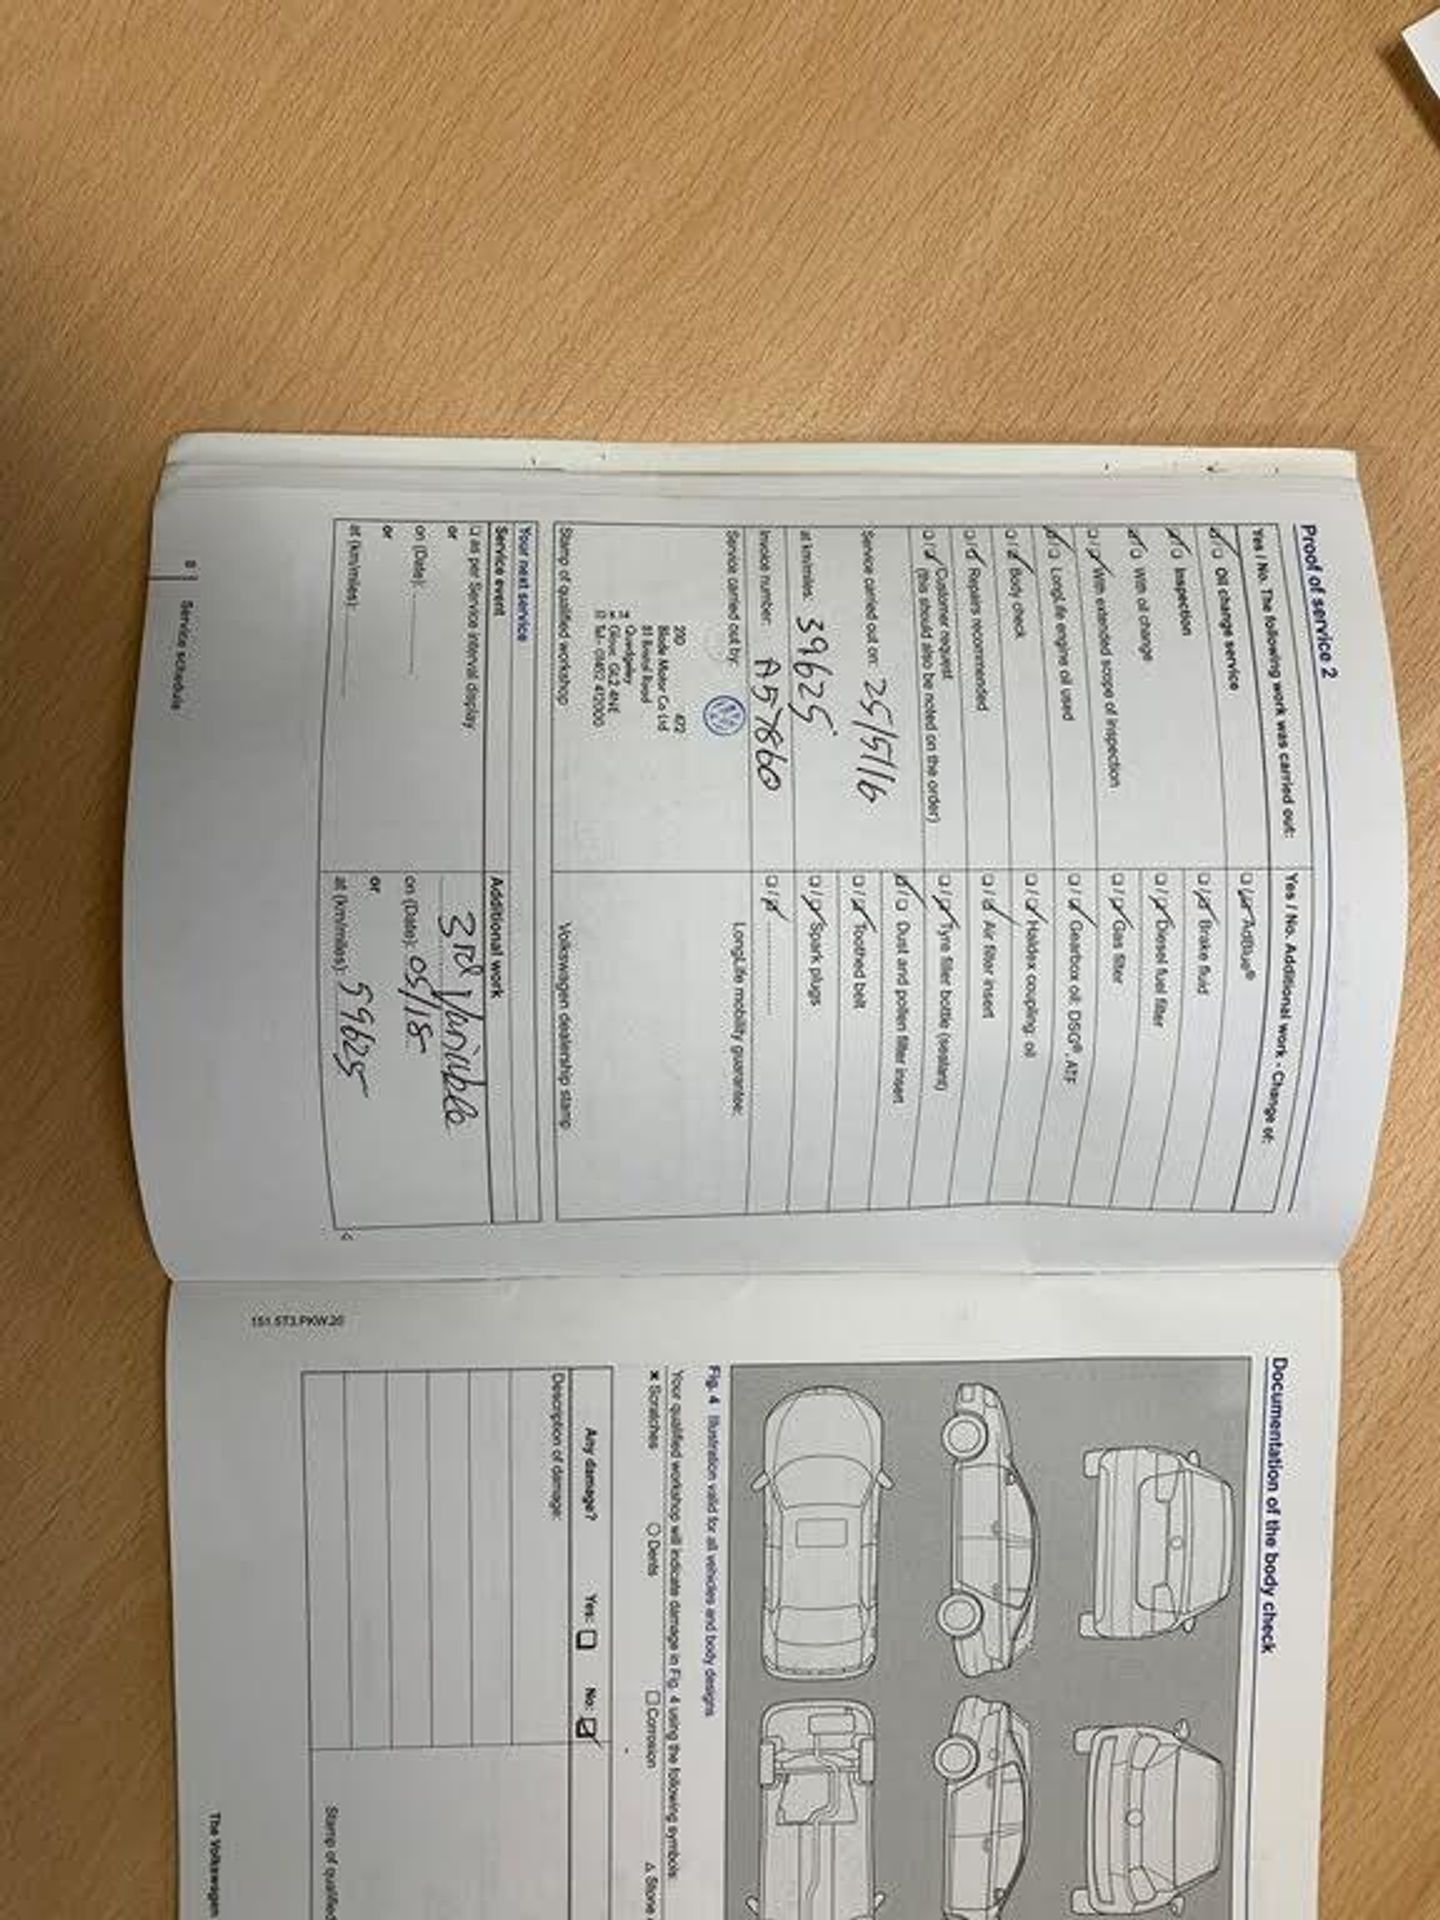 Proof of service 2
Yes / No. The following work was carried out:
Oil change service
Inspection
With oil change
With extended scope of inspection
LongLife engine oil used
Body check
Repairs recommended
Customer request
(this should also be noted on the order)
Service carried out on: 25/5/16
at km/miles: 39625
Invoice number: A57860
Service carried out by:
210 472
Blade Motor Co Ltd
Quedgeley
Tel: (01452 412000
Stamp of qualified workshop
Yes / No. Additional work - Change of:
AdBlue®
Brake fluid
Diesel fuel filter
Gas filter
Gearbox oil: DSG®, ATF
Haldex coupling: oil
Air filter insert
Tyre filler bottle (sealant)
Dust and pollen filter insert
Toothed belt
Spark plugs
LongLife mobility guarantee:
Volkswagen dealership stamp
Your next service
Service event
as per Service interval display
or
on (Date):
or
at (km/miles):
Additional work
3rd Variable
on (Date): 05/18
or
at (km/miles): 59625
8 Service schedule
151.5T3.PKW.20
Documentation of the body check
Fig. 4 Illustration valid for all vehicles and body designs
Your qualified workshop will indicate damage in Fig. 4 using the following symbols:
× Scratches ○ Dents □ Corrosion △ Stone
Any damage? Yes: No:
Description of damage:
Stamp of qualified
The Volkswagen